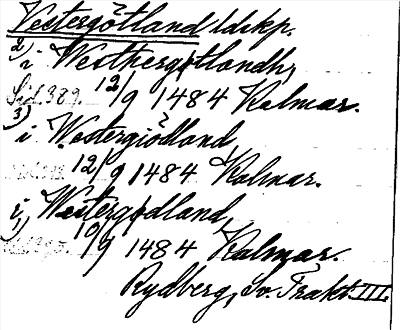 Vestergötland ldskp.
2) i Westhergøtlandh,
Sid. 389. 12/9 1484 Kalmar.
3) i Westergiödland,
12/9 1484 Kalmar.
1) i Westergødland,
10/9 1484 Kalmar.
Rydberg, Sv. Trakt. III.